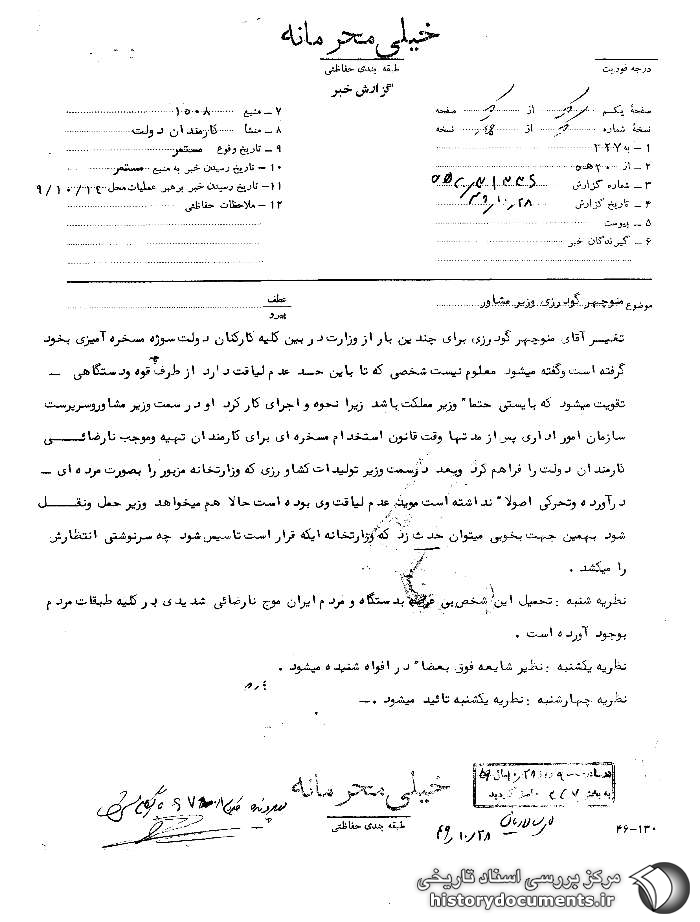 خیلی محرمانه
طبقه بندی حفاظتی
گزارش خبر
درجه فوریت
صفحهٔ یکم از صفحه
نسخهٔ شماره از نسخه
۱ – به ۳۲۷
۲ – از ۲۰ هـ
۳ – شماره گزارش
۴ – تاریخ گزارش ۴۹،۱۰،۲۸
۵ – پیوست
۶ – گیرندگان خبر
۷ – منبع ۱۵۰۰۸
۸ – منشأ کارمندان دولت
۹ – تاریخ وقوع مستمر
۱۰ – تاریخ رسیدن خبر به منبع مستمر
۱۱ – تاریخ رسیدن خبر برهبر عملیات محل
۱۲ – ملاحظات حفاظتی
موضوع منوچهر گودرزی وزیر مشاور
عطف
پیرو
تغییر آقای منوچهر گودرزی برای چندین بار از وزارت در بین کلیه کارکنان دولت سوژه مسخره آمیزی بخود
گرفته است وگفته میشود معلوم نیست شخصی که تا باین حد عدم لیاقت دارد از طرف چه قوه ودستگاهی –
تقویت میشود که بایستی حتما" وزیر مملکت باشد زیرا نحوه و اجرای کار کرد او در سمت وزیر مشاوروسرپرست
سازمان امور اداری پس از مدتها وقت قانون استخدام مسخره ای برای کارمندان تهیه وموجب نارضائــی
کارمندان دولت را فراهم کرد وبعد درسمت وزیر تولیدات کشاورزی که وزارتخانه مزبور را بصورت مرده ای –
درآورده وتحرکی اصولا" نداشته است موید عدم لیاقت وی بوده است حالا هم میخواهد وزیر حمل ونقــل
شود بهمین جهت بخوبی میتوان حدث زد که وزارتخانه ایکه قرار است تاسیس شود چه سرنوشتی انتظارش
را میکشد .
نظریه شنبه : تحمیل این شخص بی بدستگاه و مردم ایران موج نارضائی شدیدی در کلیه طبقات مردم
بوجود آورده است .
نظریه یکشنبه : نظیر شایعه فوق بعضا" در افواه شنیده میشود .
نظریه چهارشنبه : نظریه یکشنبه تائید میشود .–
خیلی محرمانه
طبقه بندی حفاظتی
۴۹،۱۰،۲۸
۴۶-۱۳۰
مرکز بررسی اسناد تاریخی
historydocuments.ir